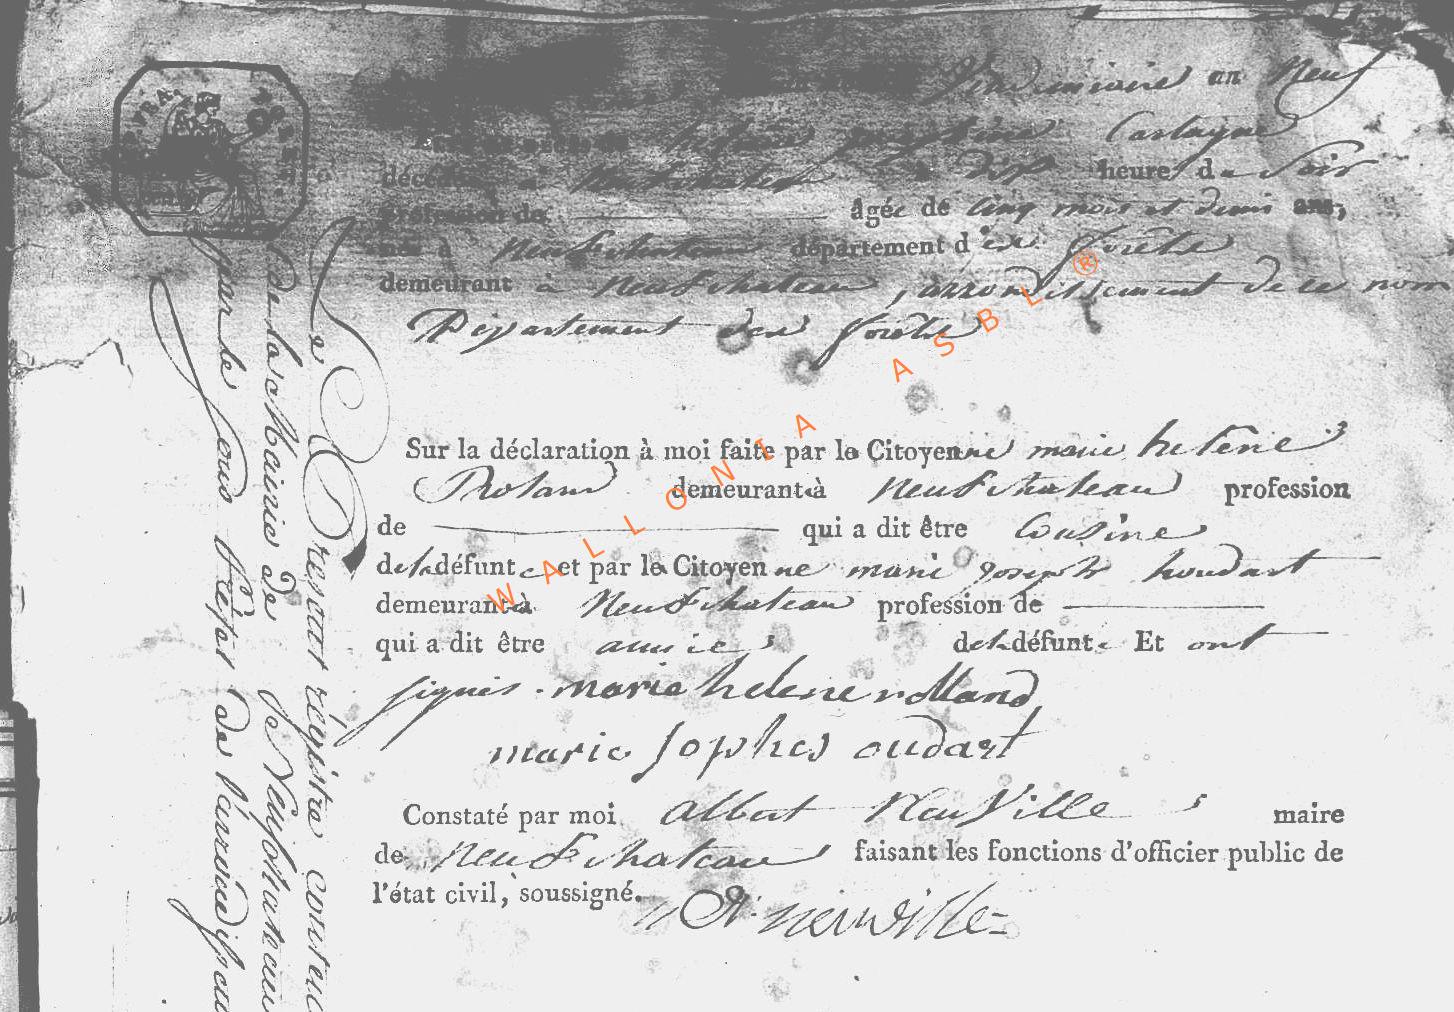 Vendemiaire an Neuf
acte de décès de helene josephine Cartagne
décédée à Neufchateau à Sept heures du Soir
profession de âgée de Cinq mois et demis ans,
née à Neufchateau département des forêts
demeurant à Neufchateau, arrondissement de ce nom
Département des forêts
Sur la déclaration à moi faite par la Citoyenne marie helene
Rolans demeurant à Neufchateau profession
de qui a dit être Cousine
de la défunte et par la Citoyenne marie joseph houdart
demeurant à Neufchateau profession de
qui a dit être amie de la défunte Et ont
signés. marie helene rolland
marie Josphes oudart
Constaté par moi Albert Neuville maire
de Neufchateau faisant les fonctions d'officier public de
l'état civil, soussigné.
A. neuville
Le Present régistre contenu
de la Mairie de Neufchateau
par le Sous Préfet de l'arrondisse
WALLONIA ASBL ®